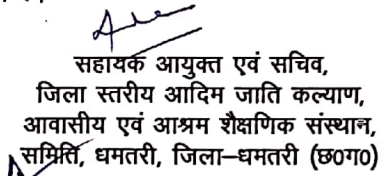 सहायक आयुक्त एवं सचिव,
जिला स्तरीय आदिम जाति कल्याण,
आवासीय एवं आश्रम शैक्षणिक संस्थान,
समिति, धमतरी, जिला–धमतरी (छ०ग०)